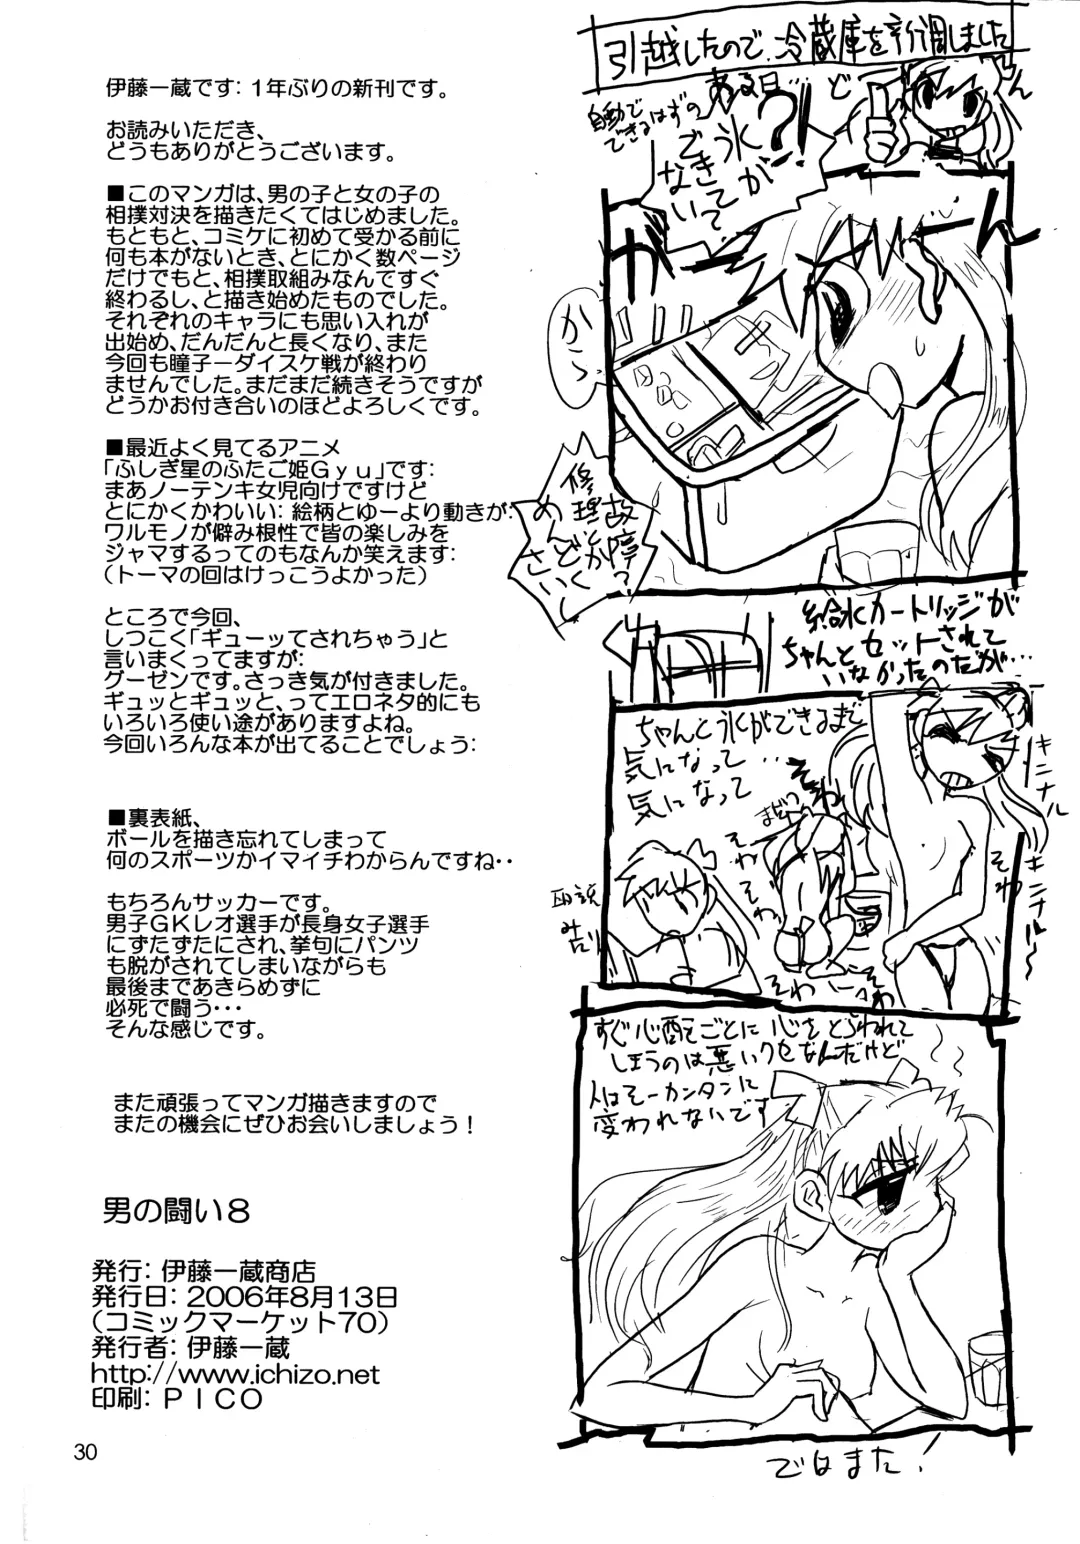 伊藤一蔵です：１年ぶりの新刊です。
お読みいただき、
どうもありがとうございます。
■このマンガは、男の子と女の子の
相撲対決を描きたくてはじめました。
もともと、コミケに初めて受かる前に
何も本がないとき、とにかく数ページ
だけでもと、相撲取組みなんてすぐ
終わるし、と描き始めたものでした。
それぞれのキャラにも思い入れが
出始め、だんだんと長くなり、また
今回も瞳子ーダイスケ戦が終わり
ませんでした。まだまだ続きそうですが
どうかお付き合いのほどよろしくです。
■最近よく見てるアニメ
「ふしぎ星のふたご姫Ｇｙｕ」です：
まあノーテンキ女児向けですけど
とにかくかわいい：絵柄とゆーより動きが：
ワルモノが僻み根性で皆の楽しみを
ジャマするってのもなんか笑えます：
（トーマの回はけっこうよかった）
ところで今回、
しつこく「ギューッてされちゃう」と
言いまくってますが：
グーゼンです。さっき気が付きました。
ギュッとギュッと、ってエロネタ的にも
いろいろ使い途がありますよね。
今回いろんな本が出てることでしょう：
■裏表紙、
ボールを描き忘れてしまって
何のスポーツかイマイチわからんですね・・
もちろんサッカーです。
男子ＧＫレオ選手が長身女子選手
にずたずたにされ、挙句にパンツ
も脱がされてしまいながらも
最後まであきらめずに
必死で闘う・・・
そんな感じです。
また頑張ってマンガ描きますので
またの機会にぜひお会いしましょう！
男の闘い８
発行：伊藤一蔵商店
発行日：２００６年８月１３日
（コミックマーケット７０）
発行者：伊藤一蔵
http://www.ichizo.net
印刷：ＰＩＣＯ
30
引越したので、冷蔵庫を新調しました
ど
ん
ある日…
自動で
できるはずの
氷が
できて
ない
？！
から
故障？
修理とか
めんどくさいし
給水カートリッジが
ちゃんとセットされて
いなかったのだが…
ちゃんと氷ができるまで
気になって…
気になって
キニナル
キニナル〜
そわ
そわ
そわ
そわ
そわ
そわ
すぐ心配ごとに心をとらわれて
しまうのは悪いクセなんだけど
人はそーカンタンに
変われないです
ではまた！